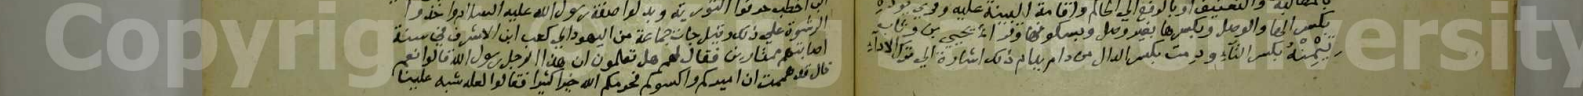 بالمطالبة والتعنيف او بالرفع الى الحاكم واقامة البينة عليه وقرئ يؤده
بكسر الها والوصل وبكسرها بغير وصل وبسكونها وقرا يحيى بن وثاب
تيمنه بكسر التاء ودمت بكسر الدال من دام يدام ذلك اشارة الى ترك الاداء
ابن اخطب حرفوا التورية وبدلوا صفة رسول الله عليه السلام واخذوا
الرشوة على ذلك وقيل جات جماعة من اليهود الى كعب ابن الاشرف في سنة
اصابتهم ممتارين فقال لهم هل تعلمون ان هذا الرجل رسول الله قالوا نعم
قال قد هممت ان اميركم واكسوكم فحرمكم الله خيرا كثيرا فقالوا لعله شبه علينا
Copyrig
ersity